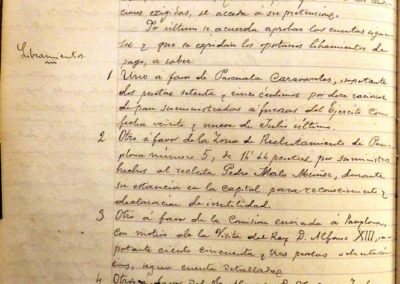 ciones exigidas, se acceda á su pretension.
Por último se acuerda aprobar las cuentas siguien-
tes y que se expidan los oportunos libramientos de
pago, a saber:
Libramientos.
1 Uno a favor de Pascuala Caravantes, importante
dos pesetas setenta y cinco centimos por doce raciones
de pan suministrados a fuerzas del Ejército con
fecha veinte y nueve de Julio último.
2 Otro á favor de la Zona de Reclutamiento de Pam-
plona número 5, de 14'44 pesetas por suministros
hechos al recluta Pedro Malo Menior, durante
su estancia en la capital para reconocimiento y
declaración de inutilidad.
3 Otro á favor de la Comision enviada á Pamplona,
con motivo de la Visita del Rey D. Alfonso XIII, im-
portante ciento cincuenta y tres pesetas
segun cuenta detallada.
4 Otro a favor del